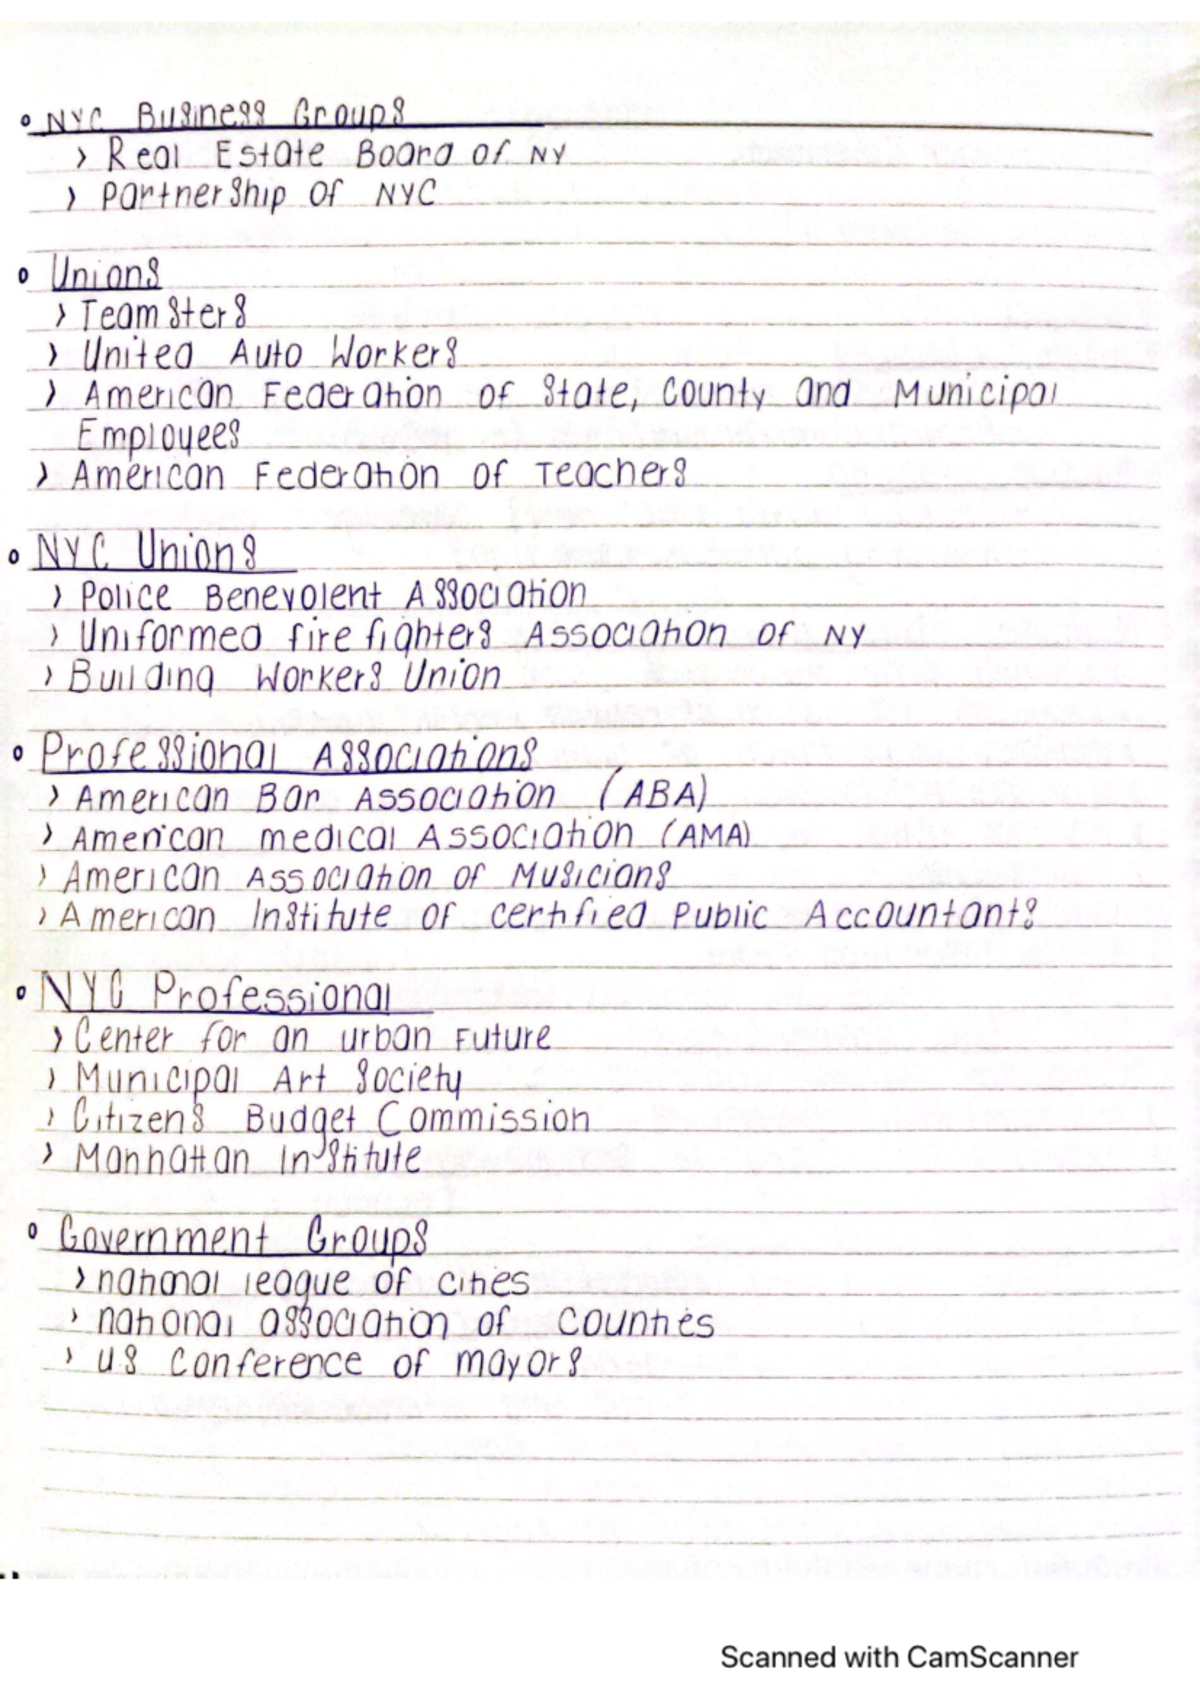 • NYC Business Groups
> Real Estate Board of NY
> Partnership of NYC
• Unions
> Teamsters
> United Auto Workers
> American Federation of State, County and Municipal
Employees
> American Federation of Teachers
• NYC Unions
> Police Benevolent Association
> Uniformed firefighters Association of NY
> Building Workers Union
• Professional Associations
> American Bar Association (ABA)
> American medical Association (AMA)
> American Association of Musicians
> American Institute of certified Public Accountants
• NYC Professional
> Center for an urban Future
> Municipal Art Society
> Citizens Budget Commission
> Manhattan Institute
• Government Groups
> national league of cities
> national association of Counties
> U.S Conference of mayors
Scanned with CamScanner